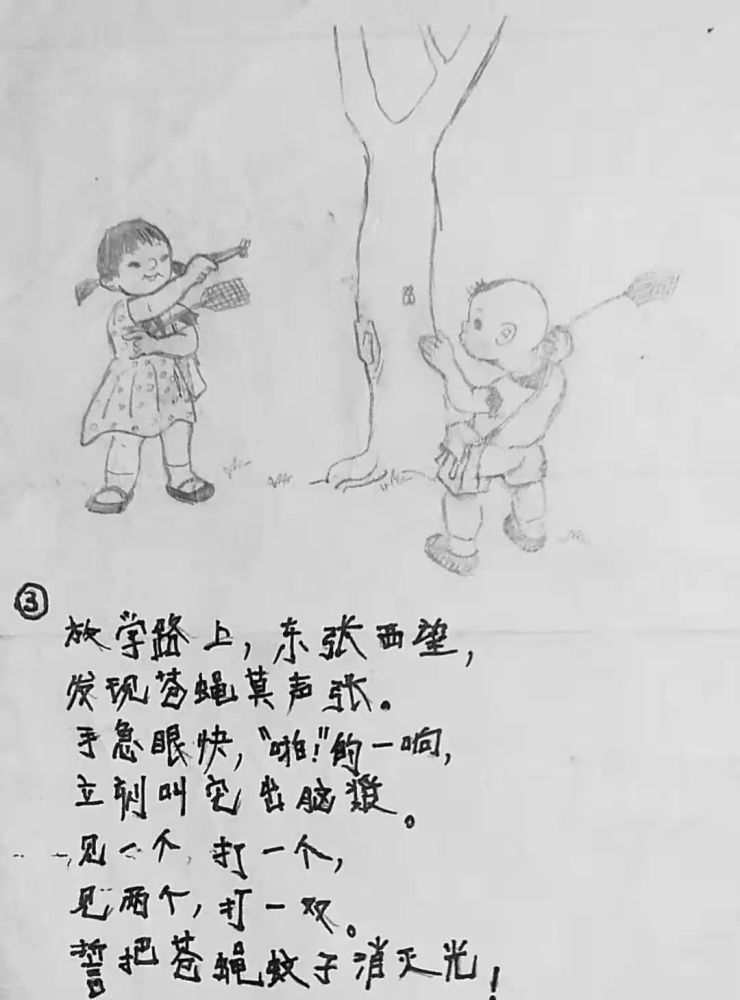 ③
放学路上,东张西望,
发现苍蝇莫声张。
手急眼快,"啪!"的一响,
立刻叫它出脑浆。
见一个,打一个,
见两个,打一双。
誓把苍蝇蚊子消灭光!